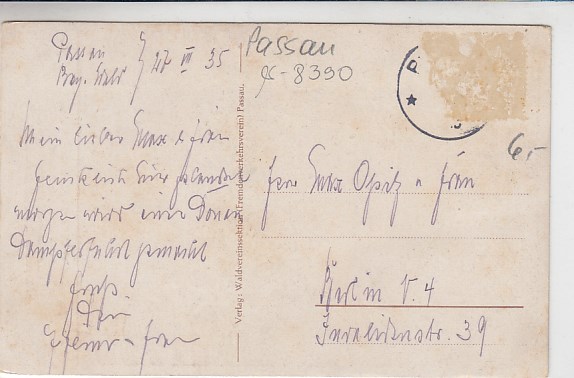 Passau
Bay. Wald
27 III 35
Passau
8390
P
6,-
Mein lieber Max & Frau
hier gelandet
morgen wird eine Donau
Dampferfahrt gemacht
Gruß
Dein
u. Frau
Verlag: Waldvereinssektion (Fremdenverkehrsverein) Passau.
Herr Max Opitz u Frau
Berlin N. 4
Invalidenstr. 39